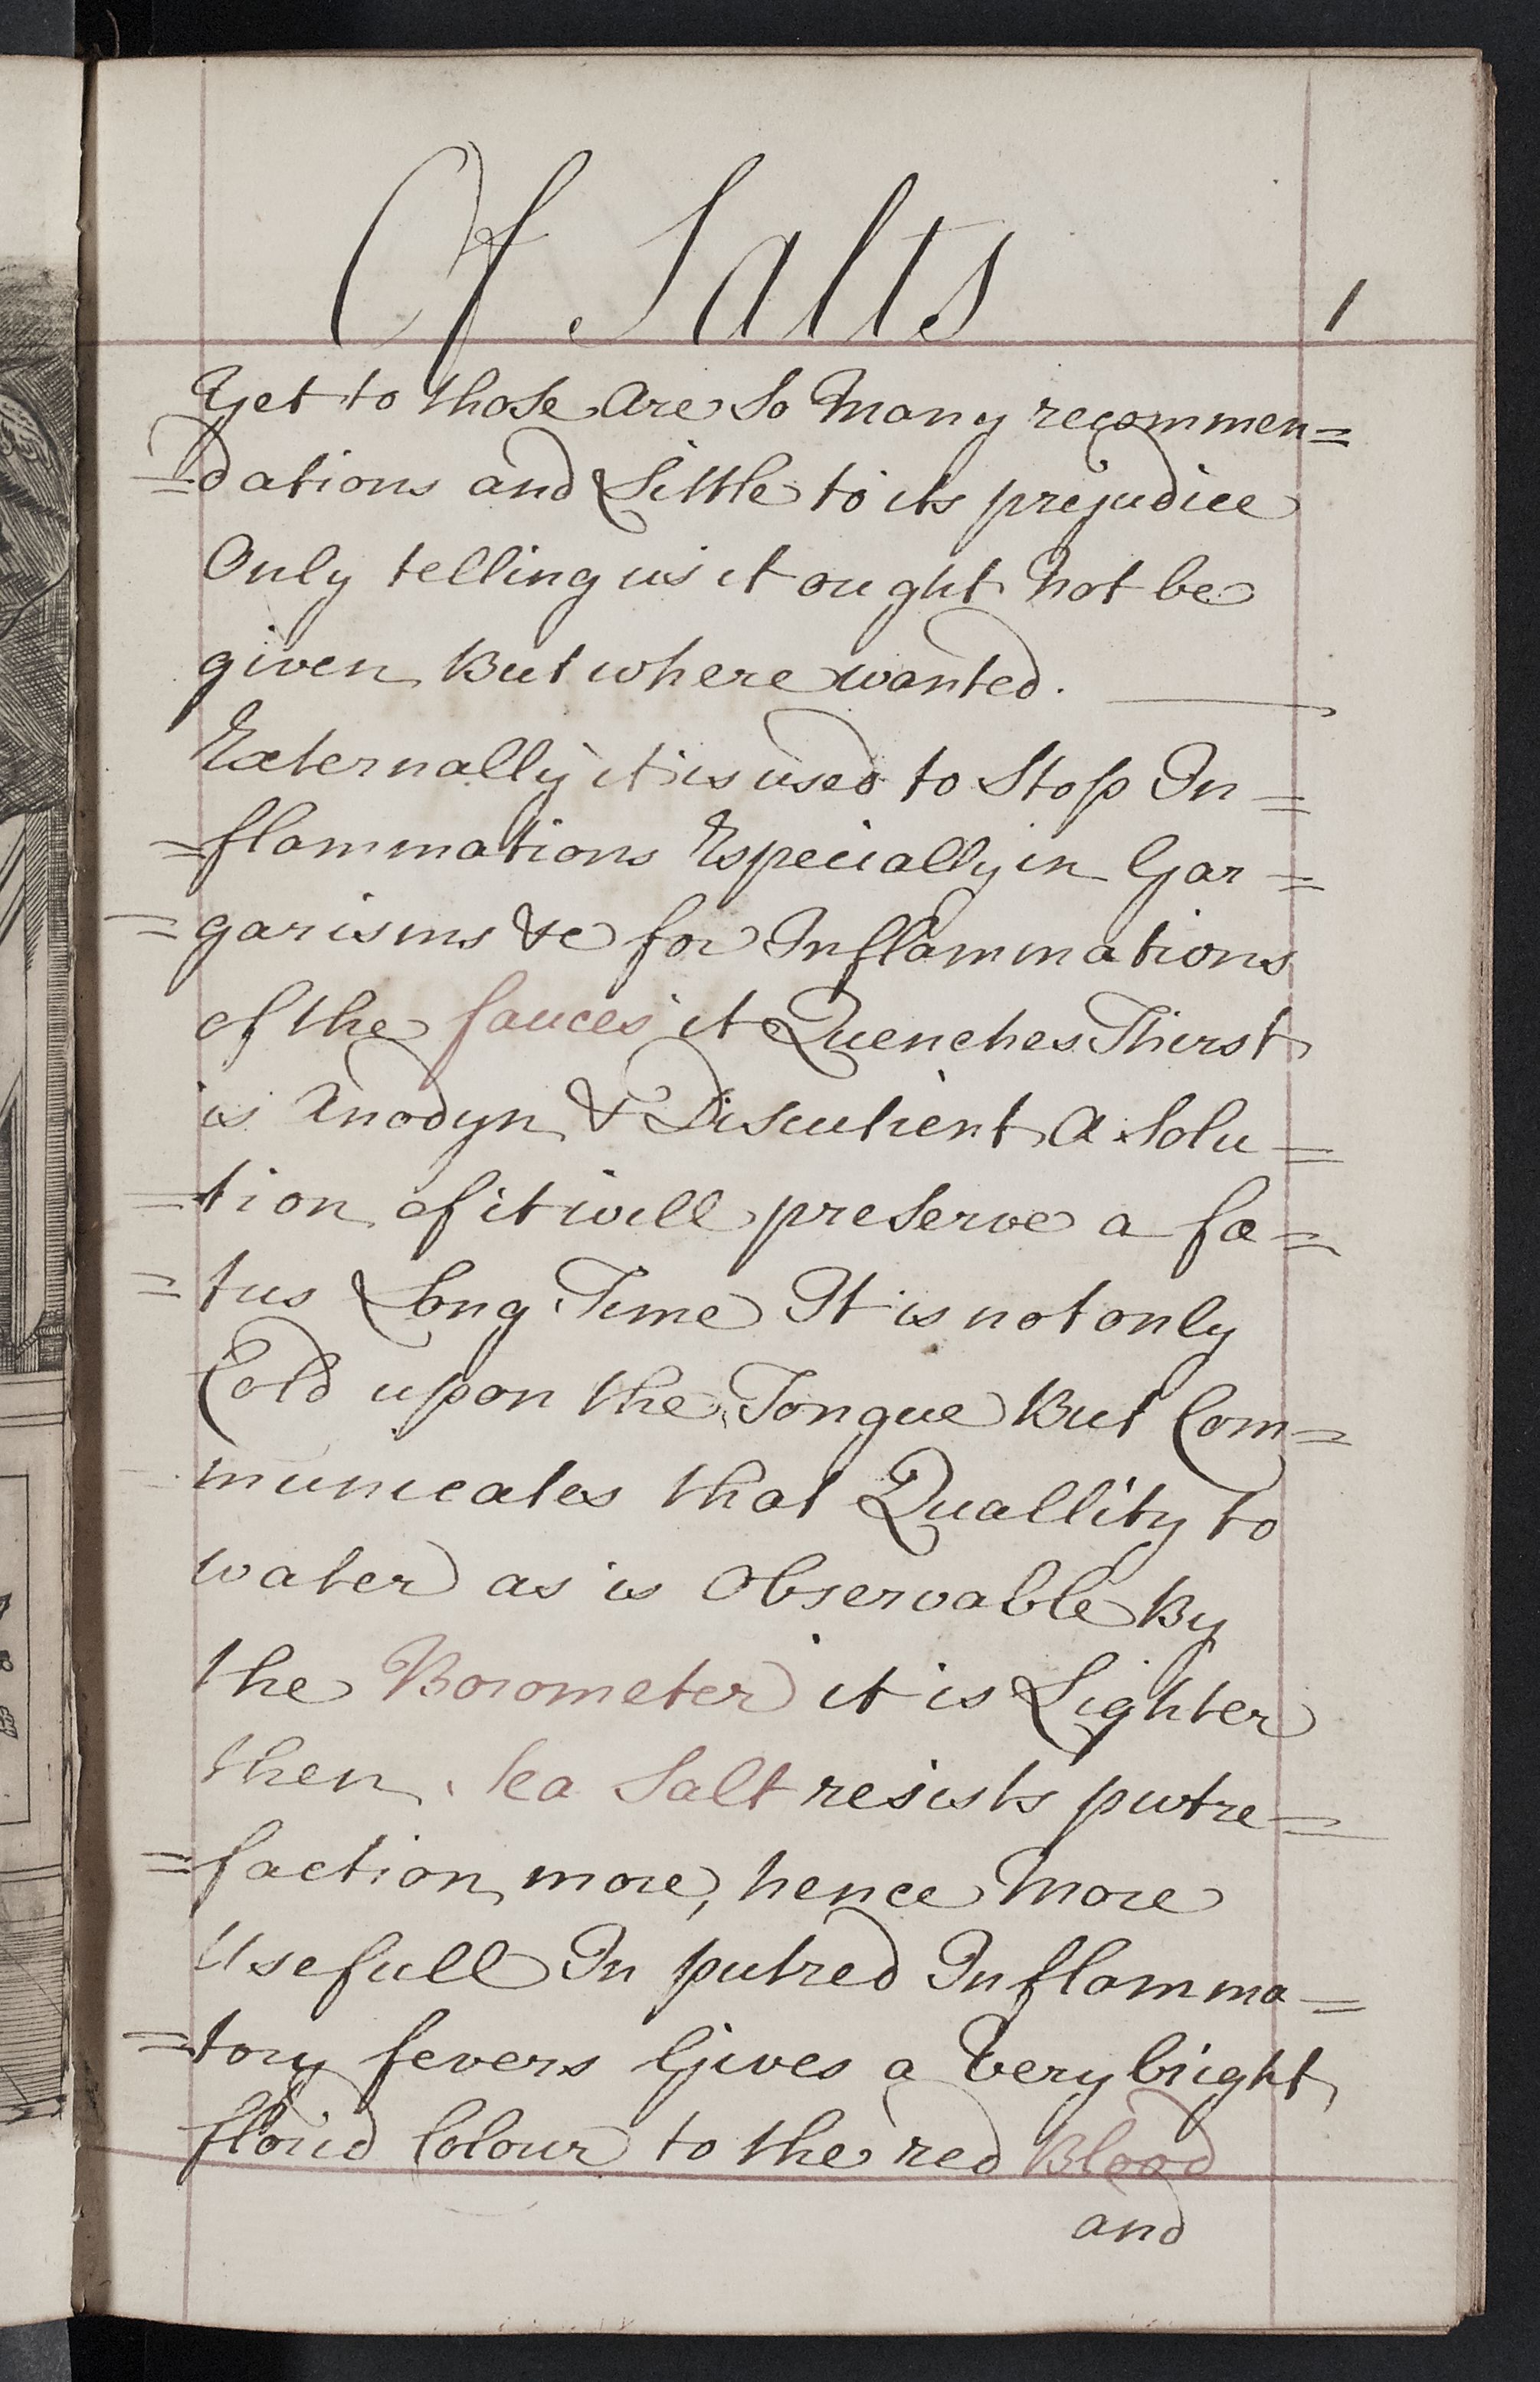 Of Salts
1
Yet to those are So Many recommen=
=dations and Little to its prejudice
Only telling us it ought Not be
given But where wanted.
Externally it is used to Stop In=
=flammations Especially in Gar=
=garisms &c for Inflammations
of the fauces it Quenches Thirst
is Anodyn & Discutient A Solu=
=tion of it will preserve a fæ=
=tus Long Time It is not only
Cold upon the Tongue But Com=
municates that Quallity to
water as is Observable By
the Borometer it is Lighter
then Sea Salt resists putre=
=faction more, hence More
Usefull In putred Inflamma=
=tory fevers Gives a Very bright
florid Colour to the red Blood
and